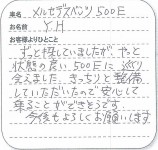 車名 メルセデスベンツ 500E
お名前 Y.H
お客様よりひとこと
ずっと探していましたが、やっと
状態の良い500Eに巡り
会えました。きっちりと整備
していただいたので安心して
乗ることができそうです。
今後もよろしくお願いします